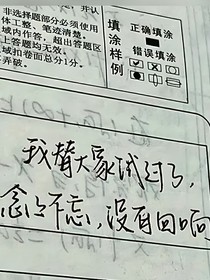 非选择题部分必须使用
体工整、笔迹清楚。
域内作答,超出答题区
上答题均无效。
域扣卷面总分1分。
弄破。
填涂样例
正确填涂
错误填涂
我替大家试过了,
念念不忘,没有回响